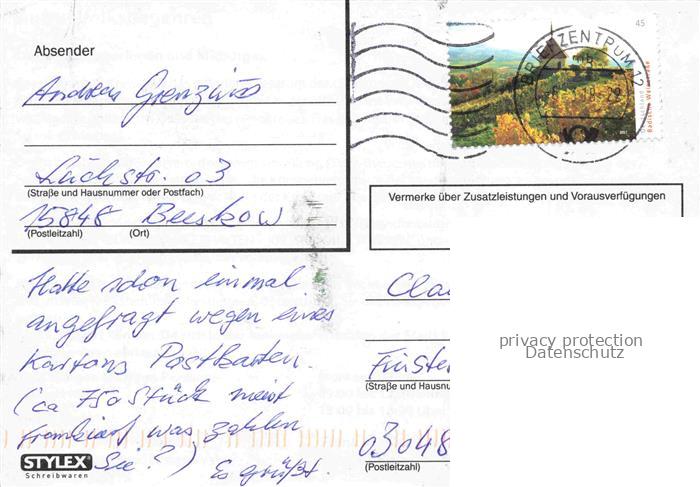 Absender
Andreas
45
BRIEFZENTRUM 12
Badische Weinstraße
03
(Straße und Hausnummer oder Postfach)
15848 Beeskow
(Postleitzahl) (Ort)
Vermerke über Zusatzleistungen und Vorausverfügungen
Hatte schon einmal
angefragt wegen eines
Kartons Postkarten.
(ca 750 Stück meist
frankiert was zahlen
Sie?) Es grüßt.
Cla
privacy protection
Datenschutz
Fürste
(Straße und Hausnu
03048
(Postleitzahl)
STYLEX
Schreibwaren